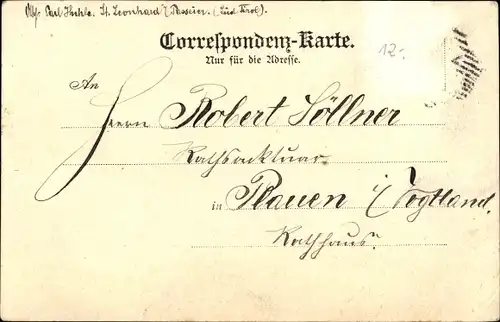 Carl St. Leonhard i/Passeier. (Süd Tirol).
Correspondenz-Karte.
Nur für die Adresse.
12.-
An
Herrn Robert Söllner
Rathsaktuar
in Plauen i/Vogtland.
Rathhaus.